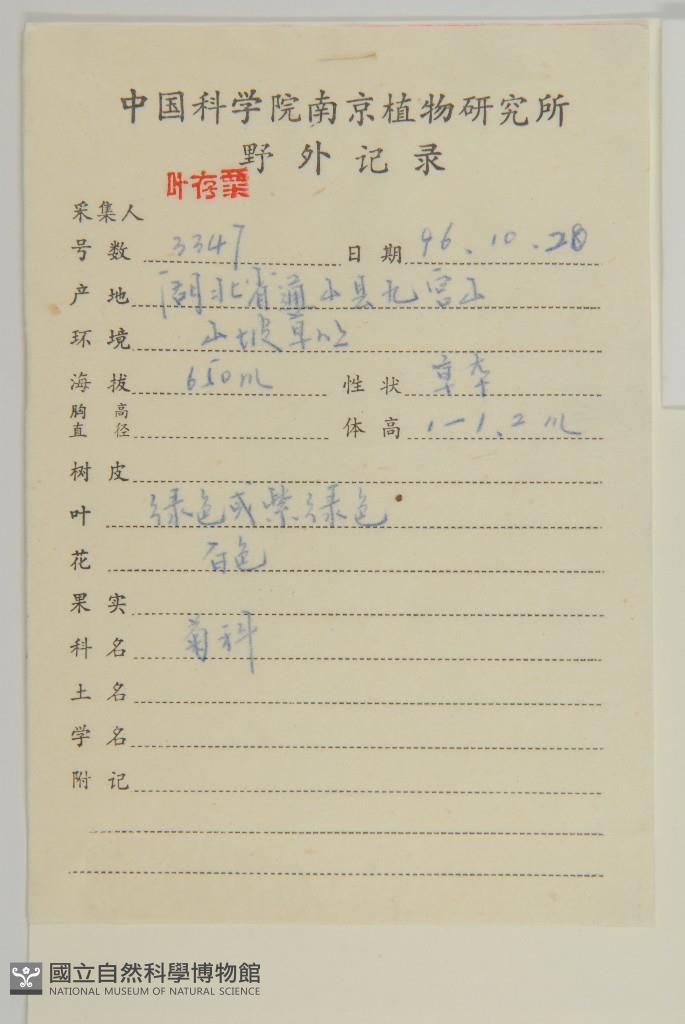 中国科学院南京植物研究所
野外记录
叶存粟
采集人
号数 3347 日期 96.10.28
产地 湖北省通山县九宫山
环境 山坡草丛
海拔 650m 性状 草本
胸高直径 体高 1-1.2m
树皮
叶 绿色或紫绿色
花 白色
果实
科名 菊科
土名
学名
附记
國立自然科學博物館
NATIONAL MUSEUM OF NATURAL SCIENCE